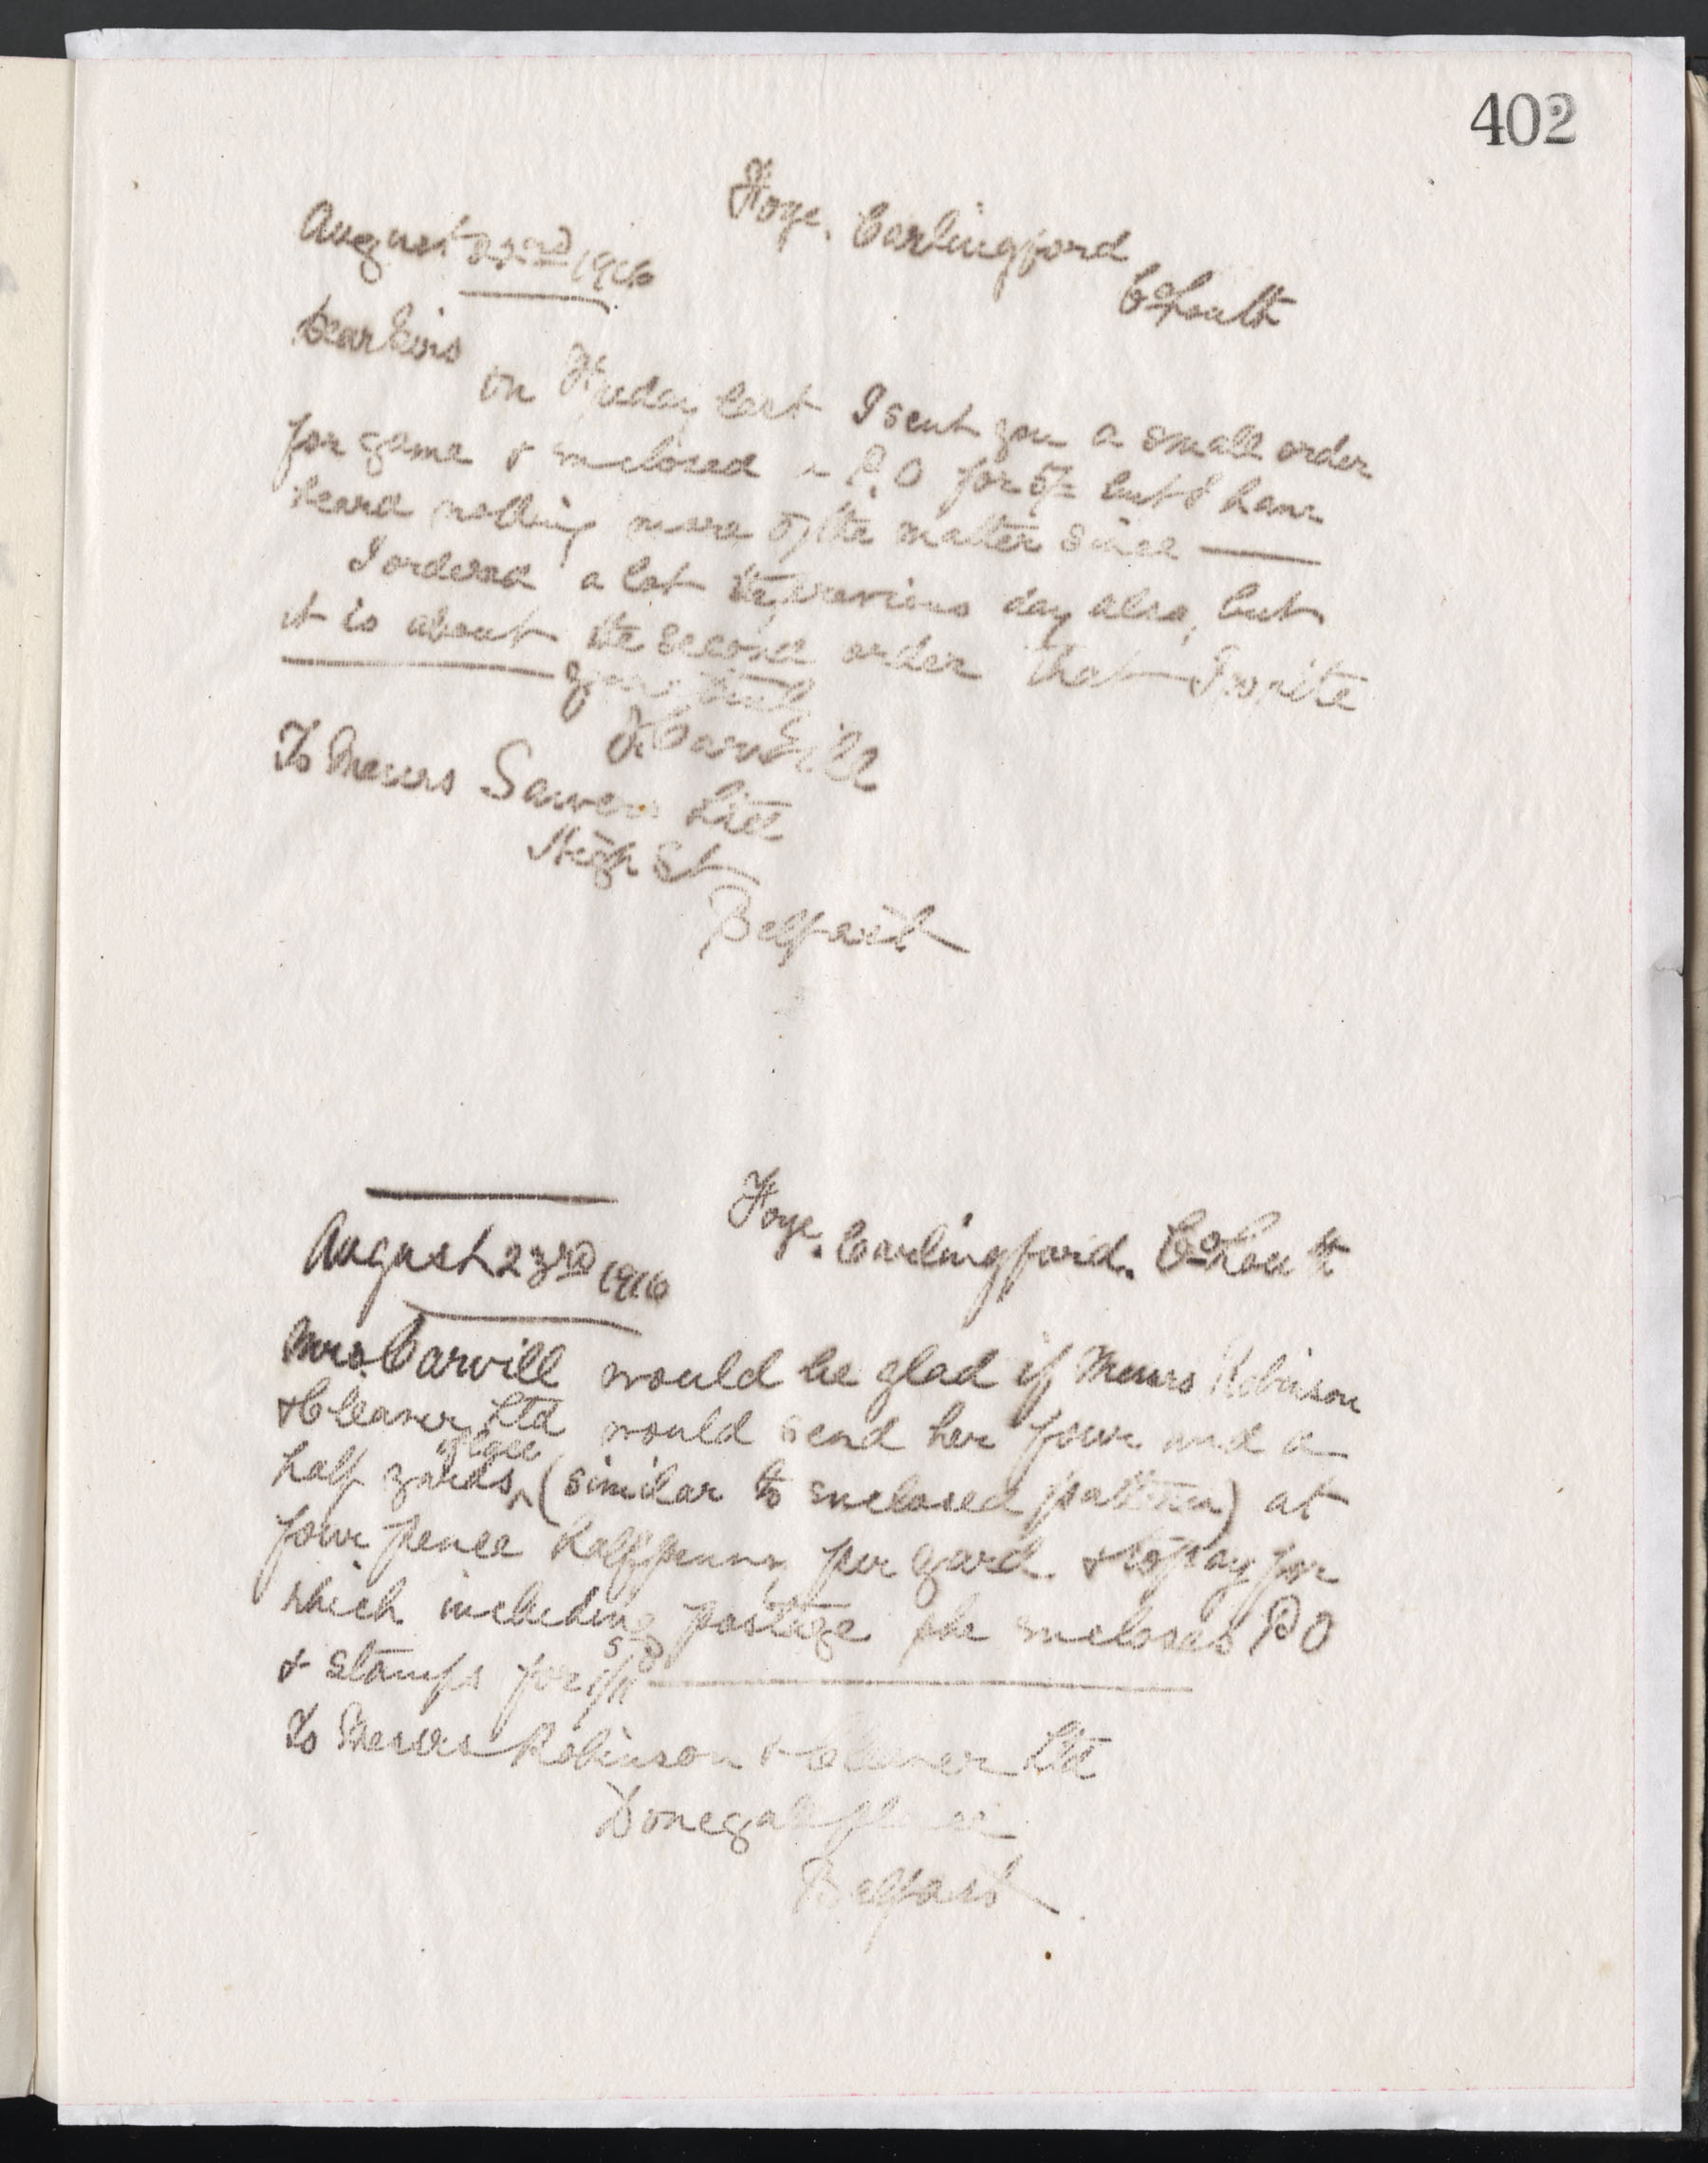 402
Foye. Carlingford
Co Louth
August 23rd 1916
Dear Sirs
On Friday last I sent you a small order
for game & enclosed a P.O for 5/= but I have
heard nothing more of the matter since —
I ordered a lot the previous day also, but
it is about the second order that I write
yours truly
Carvill
To Messrs Sawers Ltd
High St
Belfast
Foye. Carlingford. Co Louth
August 23rd 1916
Mrs. Carvill would be glad if Messrs Robinson
& Cleaver Ltd would send her four and a
half yards (similar to enclosed pattern) at
four pence halfpenny per yard. & to pay for
which including postage she encloses P O
& stamps for 1s/11d
To Messrs Robinson & Cleaver Ltd
Donegall place
Belfast